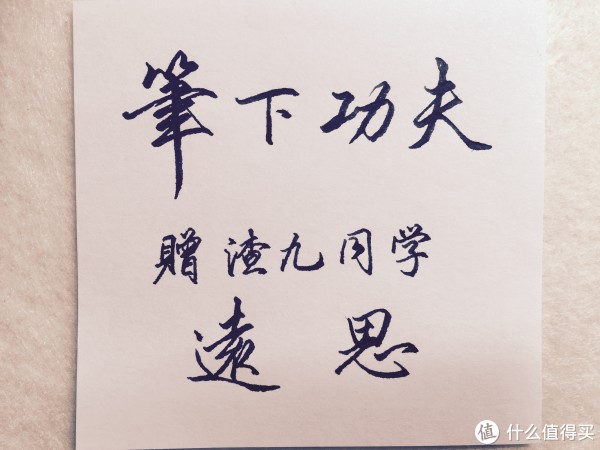 筆下功夫
贈渣九同学
遠思
值 什么值得买